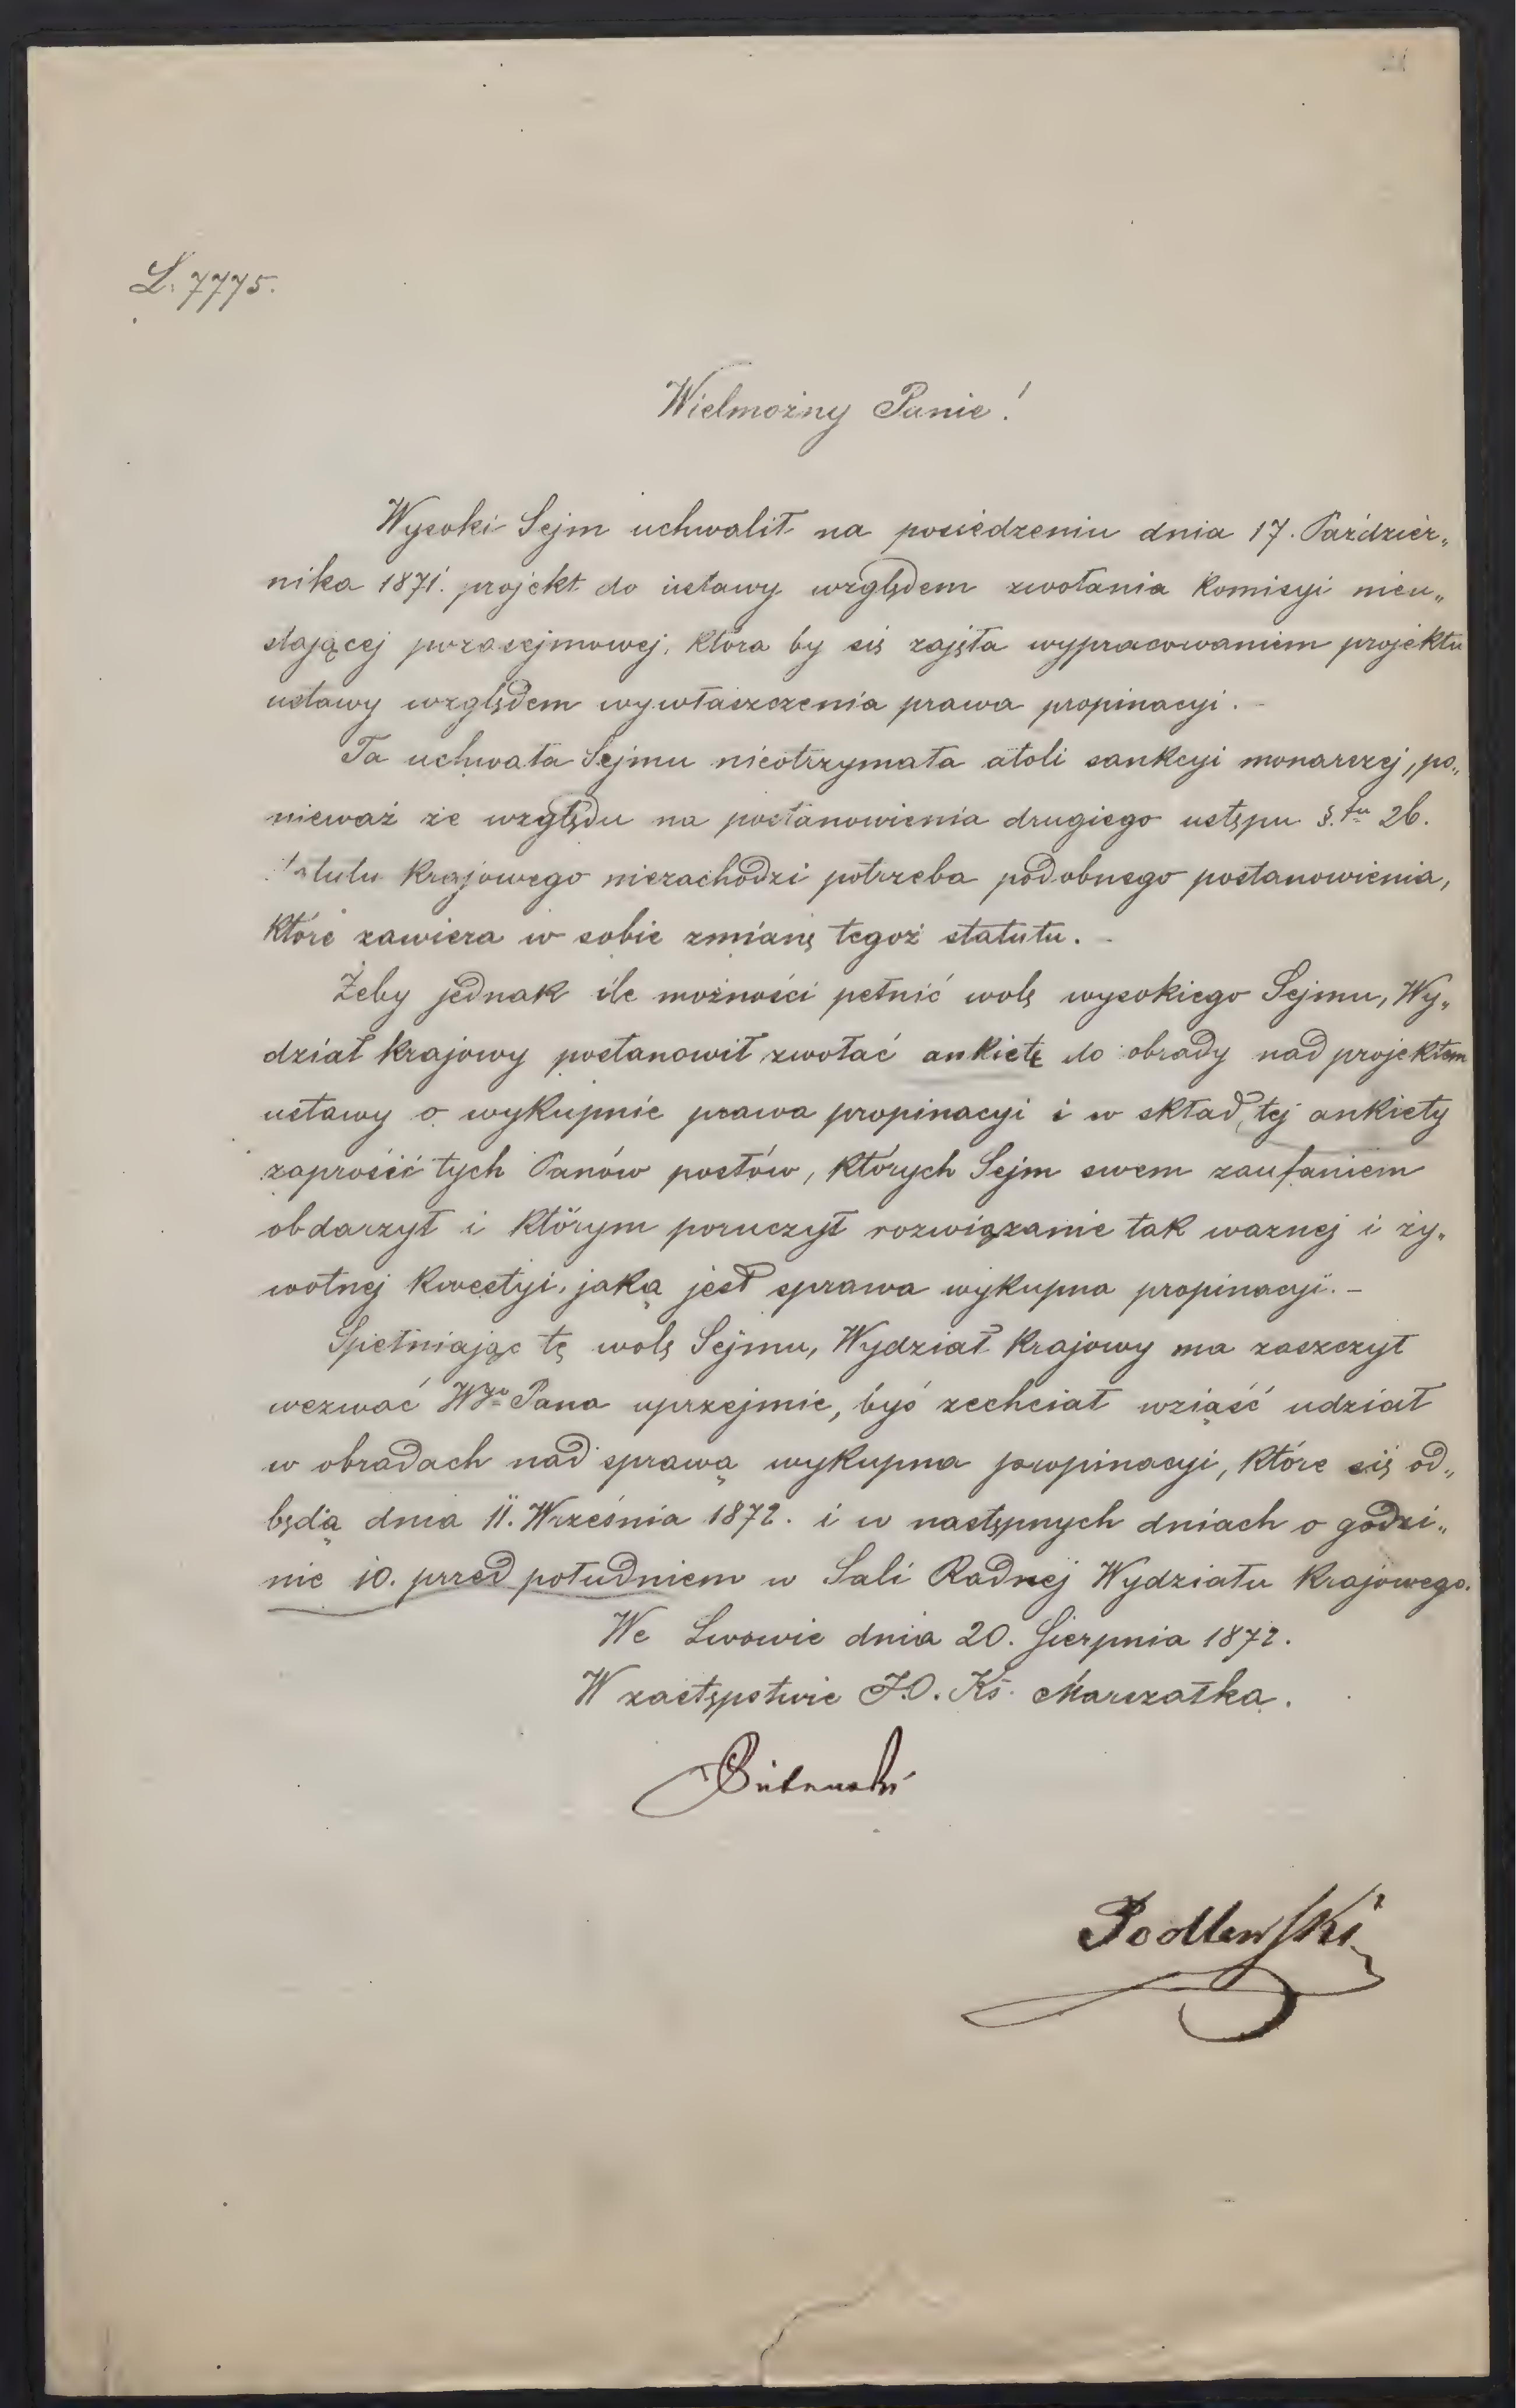 L. 7775.
Wielmożny Panie!
Wysoki Sejm uchwalił na posiedzeniu dnia 17. Paździer„
nika 1871. projekt do ustawy względem zwołania Komisyi nieu„
stającej pozasejmowej, która by się zajęła wypracowaniem projektu
ustawy względem wywłaszczenia prawa propinacyi. –
Ta uchwała Sejmu nieotrzymała atoli sankcyi monarszej, po„
nieważ ze względu na postanowienia drugiego ustępu §.fu 26.
statutu Krajowego niezachodzi potrzeba podobnego postanowienia,
które zawiera w sobie zmianę tegoż statutu. –
Żeby jednak ile możności pełnić wolę wysokiego Sejmu, Wy„
dział krajowy postanowił zwołać ankietę do obrady nad projektem
ustawy o wykupnie prawa propinacyi i w skład tej ankiety
zaprosić tych Panów posłów, których Sejm swem zaufaniem
obdarzył i którym poruczył rozwiązanie tak ważnej i ży„
wotnej kwestyi, jaką jest sprawa wykupna propinacyi. –
Spełniając tę wolę Sejmu, Wydział Krajowy ma zaszczyt
wezwać Wgo Pana uprzejmie, byś zechciał wziąść udział
w obradach nad sprawą wykupna propinacyi, które się od„
będą dnia 11. Września 1872. i w następnych dniach o godzi„
nie 10. przed południem w Sali Radnej Wydziału Krajowego.
We Lwowie dnia 20. Sierpnia 1872.
W zastępstwie J.O. Ks. Marszałka.
Podlewski